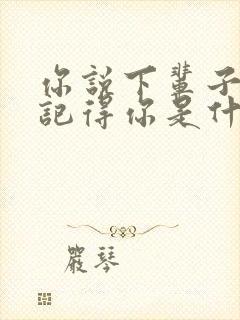 你說下輩子
記得你是什
嚴琴